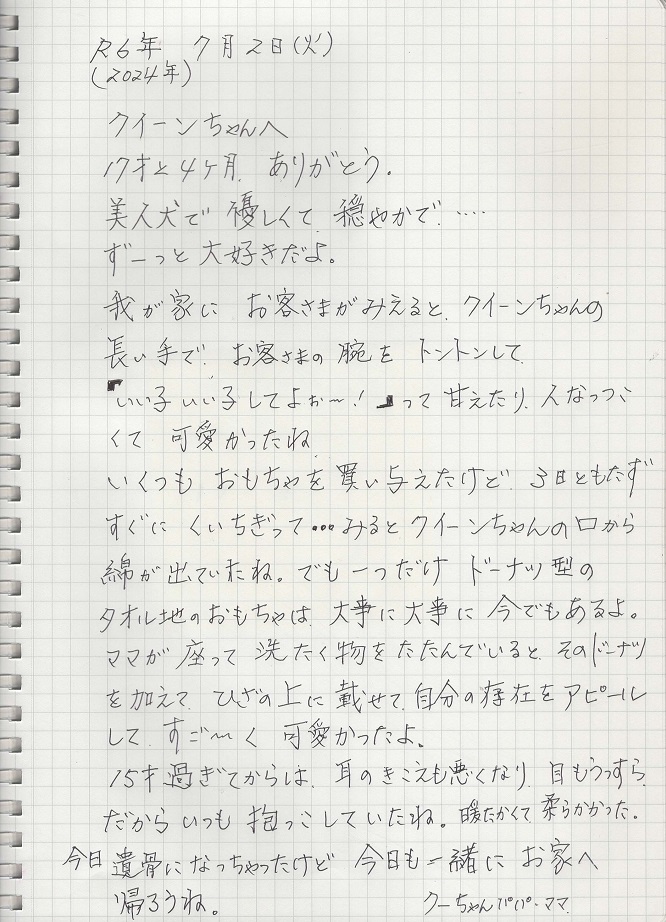 R6年 7月2日(火)
(2024年)
クイーンちゃんへ
17才と4ヶ月、ありがとう。
美人犬で 優しくて、穏やかで‥‥
ずーっと大好きだよ。
我が家に お客さまがみえると、クイーンちゃんの
長い手で、お客さまの腕を トントンして、
「いい子いい子してよぉ〜!」って 甘えたり、人なつっこ
くて 可愛かったね
いくつも おもちゃを買い与えたけど、3日ともたず
すぐに くいちぎって…みるとクイーンちゃんの口から
綿が出ていたね。でも一つだけ ドーナツ型の
タオル地のおもちゃは、大事に大事に 今でもあるよ。
ママが 座って 洗たく物をたたんでいると、そのドーナツ
を加えて、ひざの上に 載せて、自分の存在をアピール
して、すご〜く 可愛かったよ。
15才過ぎてからは、耳のきこえも悪くなり、目もうっすら、
だからいつも 抱っこしていたね。暖たかくて柔らかかった。
今日 遺骨になっちゃったけど 今日も一緒に お家へ
帰ろうね。
クーちゃんパパ・ママ